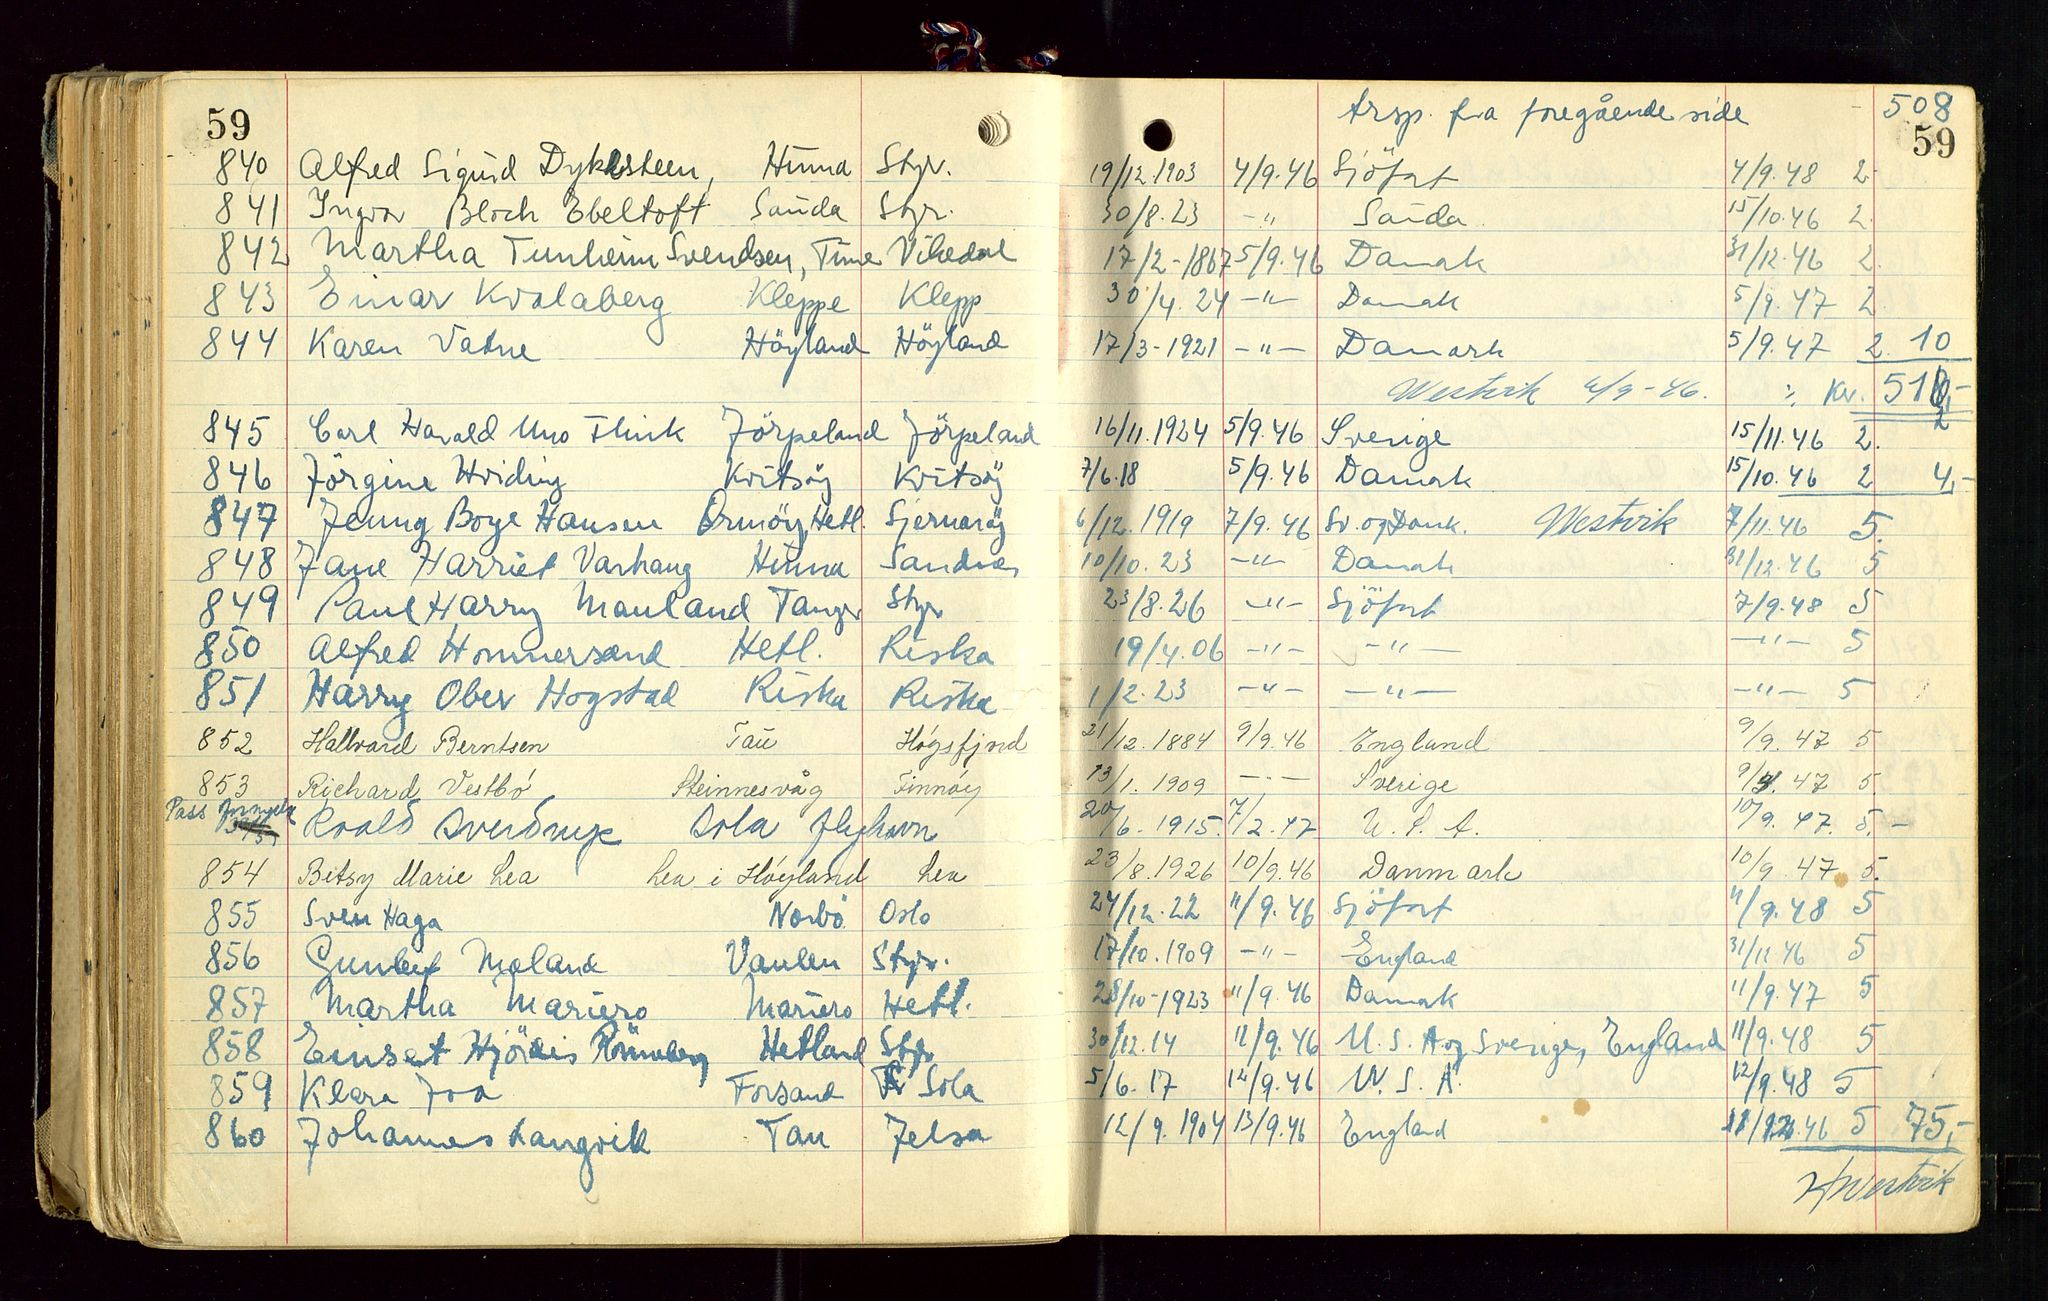 59
trsp. fra foregående side 508
59
840 Alfred Sigurd Dykesteen, Hinna Styr. 19/12.1903 4/9.46 Sjöfart 4/9.48 2.
841 Ingvar Bloch Ebeltoft Sauda Styr. 30/8.23 -"- Sauda 15/10.46 2.
842 Martha Tunheim Svendsen, Time Vikedal 17/2-1867 5/9.46 Damark 31/12.46 2.
843 Einar Kvalaberg Kleppe Klepp 30/4.24 -"- Damark 5/9.47 2.
844 Karen Vatne Höyland Höyland 17/3-1921 -"- Damark 5/9.47 2. 10
Westvik 4/9-46. Kr. 518,-
845 Carl Harald Uno Flink Jörpeland Jörpeland 16/11.1924 5/9.46 Sverige 15/11.46 2. 2
846 Jörgine Hviding Kvitsöy Kvitsöy 7/6.18 5/9.46 Damark 15/10.46 2 4,-
847 Jenny Boye Hansen Ormöy, Hetl. Sjernaröy 6/12.1919 7/9.46 Sv. og Dank. Westvik 7/11.46 5.
848 Jane Harriet Varhaug Hinna Sandnes 10/10.23 -"- Damark 31/12.46 5
849 Paul Harry Mauland Tanger Styr 23/8.26 -"- Sjöfart 7/9.48 5
850 Alfred Hommersand Hetl. Riska 19/4.06 -"- -"- -"- 5
851 Harry Ober Hogstad Riska Riska 1/2.23 -"- -"- -"- 5
852 Hallvard Berntsen Tau Högsfjord 21/12.1884 9/9.46 England 9/9.47 5
853 Richard Vestbö Steinnesvåg Finnöy 13/1.1909 -"- Sverige 9/9.47 5
Pass fornyelse Roald Sverdrup Sola flyhavn 20/6.1915. 7/2.47 U.S.A. 10/9.47. 5.-
854 Bitsy Marie Lea Lea i Höyland Lea 23/8.1926 10/9.46 Danmark 10/9.47 5.
855 Sven Haga Norbö Oslo 24/12.22 11/9.46 Sjöfart 11/9.48 5
856 Gunleif Meland Vaulen Styr. 17/10.1909 -"- England 31/11.46 5
857 Martha Mariero Mariero Hetl. 28/10-1923 11/9.46 Damark 11/9.47 5
858 Einset Hjördis Hetland Styr 30/12.14 11/9.46 U.S.A og Sverige, England 11/9.48 5
859 Klara Forsand Sola 5/6.17 12/9.46 U.S.A. 12/9.48 5
860 Johannes Langvik Tau Jelsa 12/9.1904 13/9.46 England 46 5 75,-
Westvik